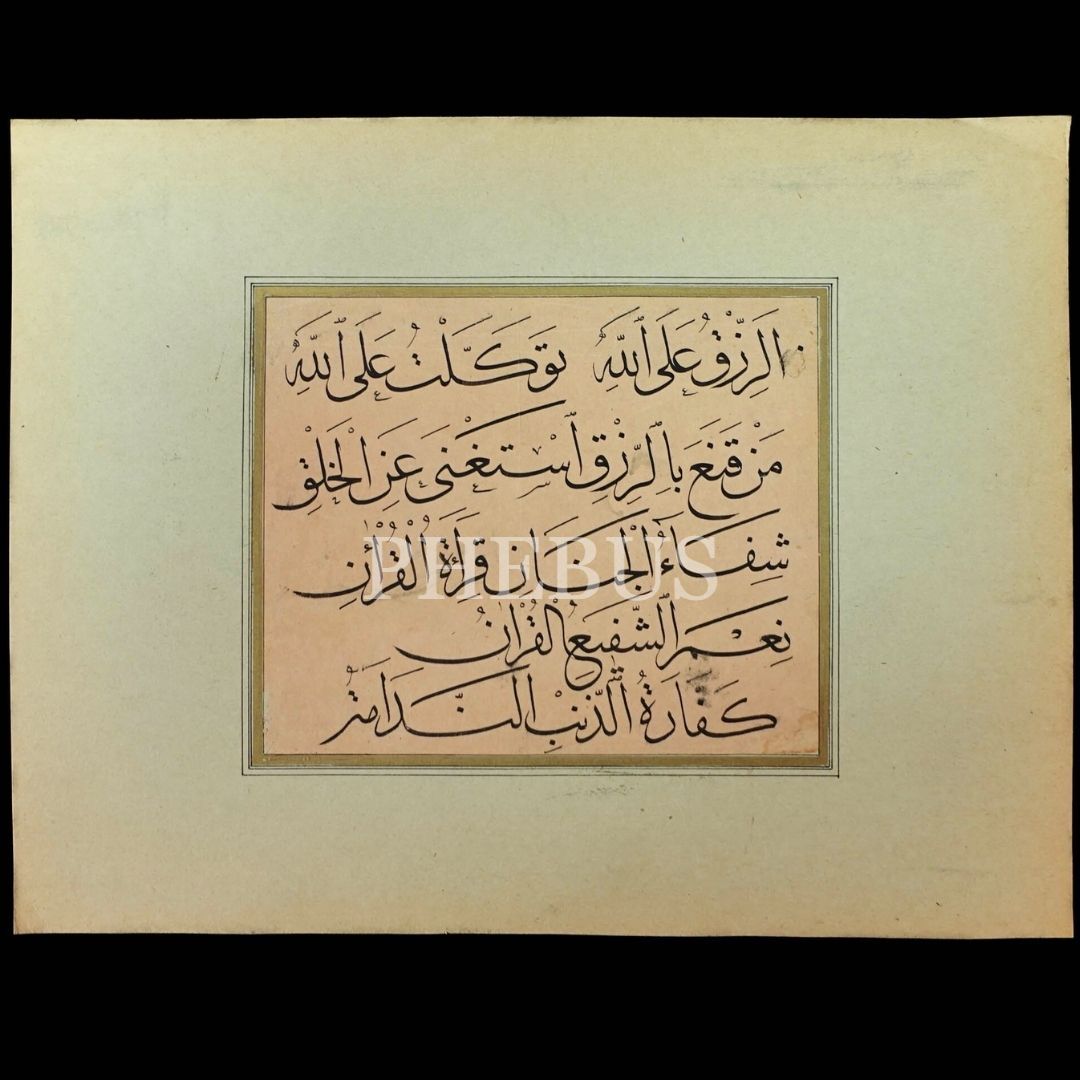 اَلرِّزْقُ عَلَى اللّٰهِ تَوَكَّلْتُ عَلَى اللّٰهِ
مَنْ قَنَعَ بِالرِّزْقِ اسْتَغْنٰى عَنِ الْخَلْقِ
شِفَاءُ الْجَنَانِ قِرَاءَةُ الْقُرْاٰنِ
PHEBUS
نِعْمَ الشَّفِيعُ الْقُرْاٰنُ
كَفَارَةُ الذَّنْبِ النَّدَامَةُ